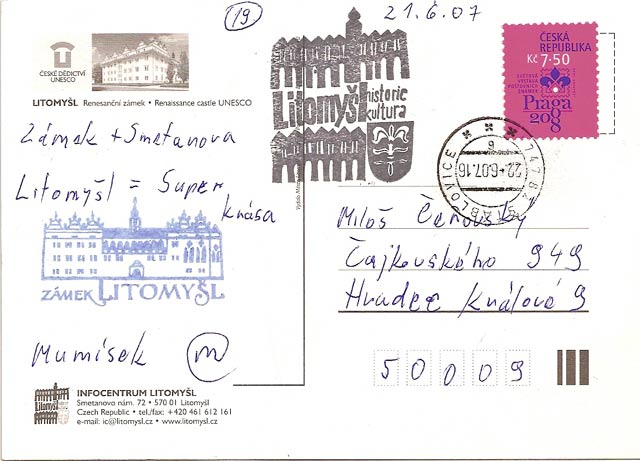 19
21.6.07
ČESKÉ DĚDICTVÍ
UNESCO
LITOMYŠL Renesanční zámek • Renaissance castle UNESCO
Litomyšl
historie
kultura
ČESKÁ
REPUBLIKA
Kč 7·50
SVĚTOVÁ
VÝSTAVA
POŠTOVNÍCH
ZNÁMEK
Praga
2008
22.-6.07.16
Zámek + Smetanova
Litomyšl = Super
krása
ZÁMEK LITOMYŠL
Mumísek m
Miloš Čeňovský
Čajkovského 949
Hradec Králové 9
50009
Litomyšl
INFOCENTRUM LITOMYŠL
Smetanovo nám. 72 • 570 01 Litomyšl
Czech Republic • tel./fax: +420 461 612 161
e-mail: ic@litomysl.cz • www.litomysl.cz